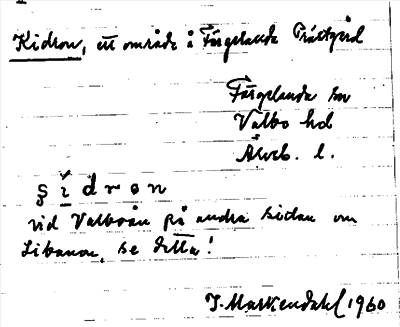 Kidron, ett område å Färgelanda Prästgård
Färgelanda sn
Valbo hd
Älvsb. l.
vid Valboån på andra sidan om
Libanon, se detta!
1960